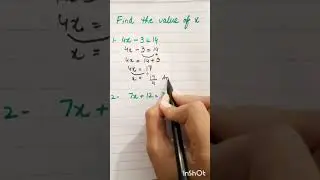 Find the value of x
1- 4x - 3 = 14
4x - 3 = 14
4x = 14 + 3
4x = 17
x = 17/4
2- 7x + 12 =
InShOt